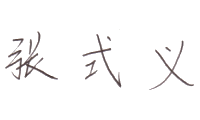 张式义